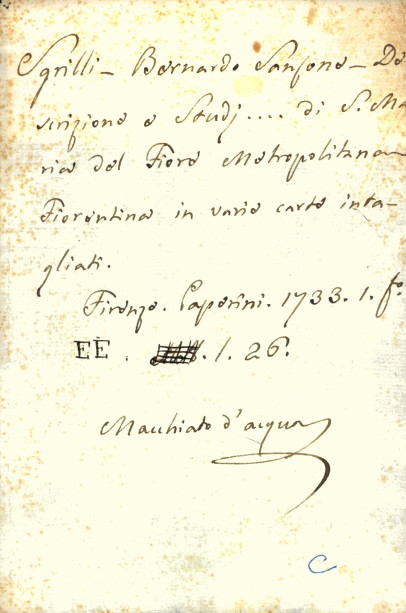 Sgrilli - Bernardo Sansone - De
scrizione e Studj .... di S. Ma
ria del Fiore Metropolitana
Fiorentina in varie carte inta-
gliati.
Firenze. Paperini. 1733. 1. fo.
EE . . 1. 26.
Macchiato d'acqua
C